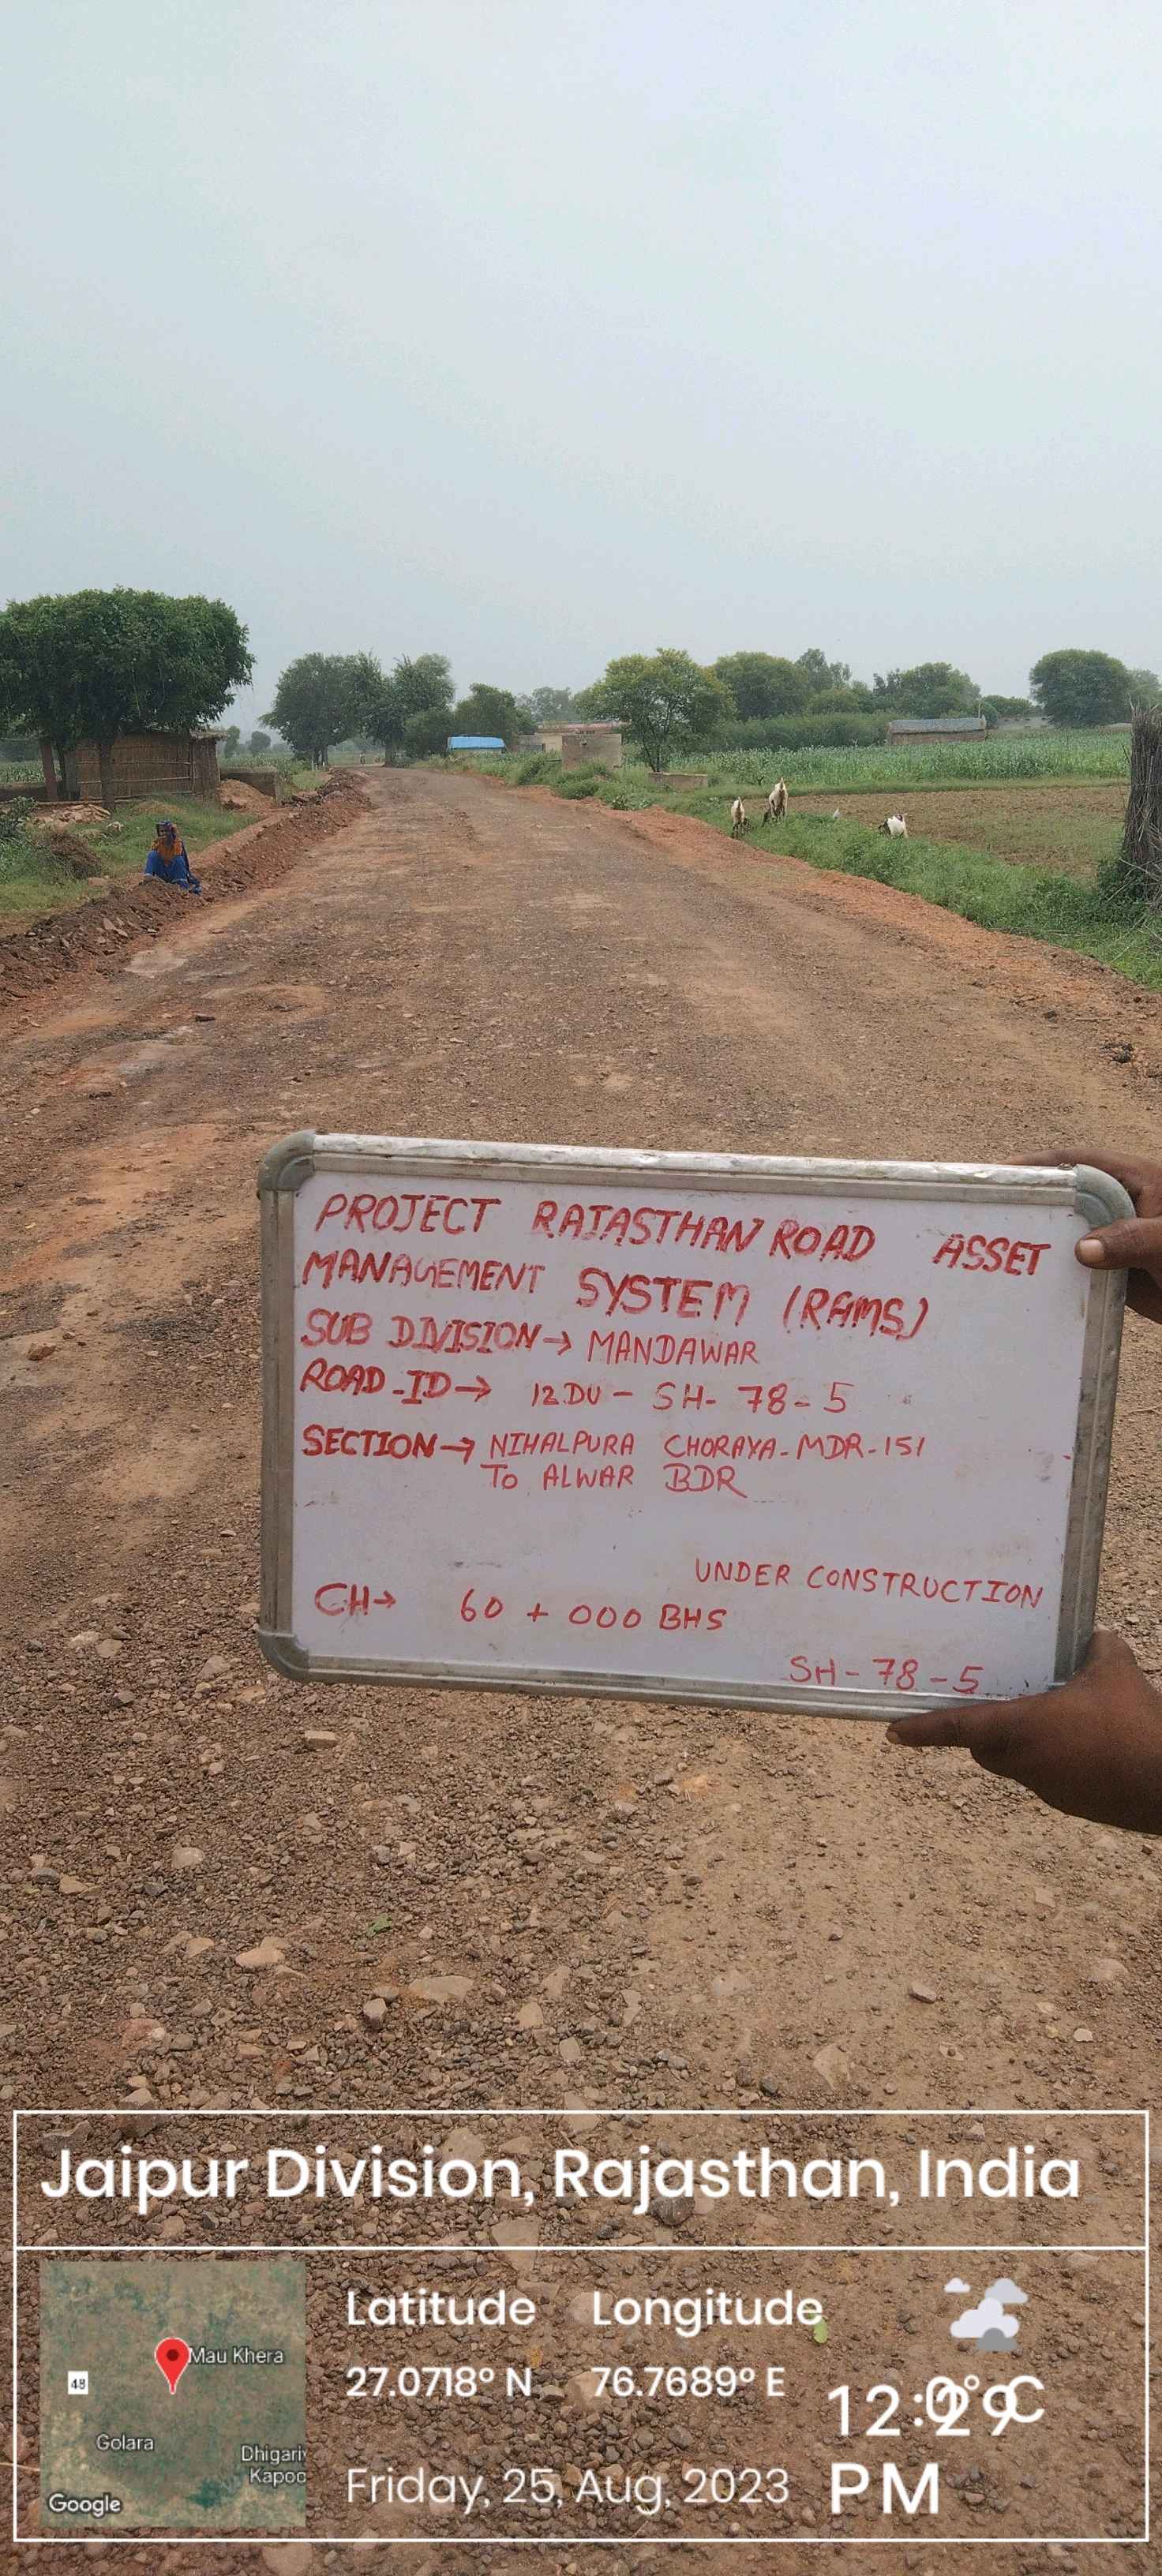 PROJECT RAJASTHAN ROAD ASSET
MANAGEMENT SYSTEM (RAMS)
SUB DIVISION→ MANDAWAR
ROAD-ID→ 12DU - SH- 78-5
SECTION→ NIHALPURA CHORAYA-MDR-151
TO ALWAR BDR
UNDER CONSTRUCTION
CH→ 60 + 000 BHS
SH-78-5
Jaipur Division, Rajasthan, India
Latitude Longitude
27.0718° N 76.7689° E
Friday, 25, Aug, 2023
PM
Mau Khera
48
Golara
Kapoo
Google